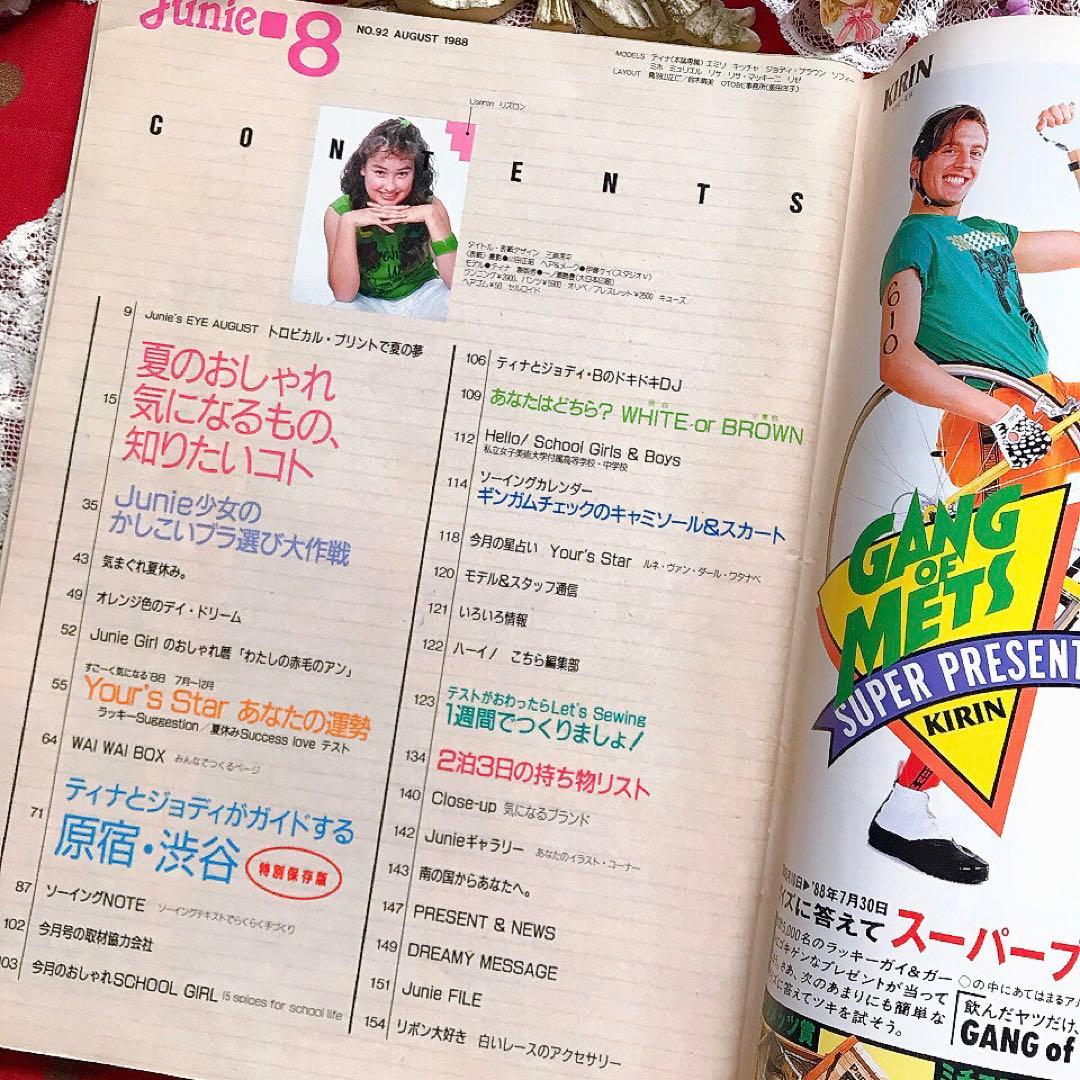 Junie 8
NO.92 AUGUST 1988
MODELS ティナ(本誌専属) エミリ キッチャ ジョディ・ブラウン ソフィー
ミホ ミュリエル リサ リサ・マッキーニ リゼ
LAYOUT
CONTENTS
Liseron リズロン
タイトル・表紙デザイン
ヘアゴム¥50 セルロイド
9 Junie's EYE AUGUST トロピカル・プリントで夏の夢
15 夏のおしゃれ
気になるもの、
知りたいコト
35 Junie少女の
かしこいブラ選び大作戦
43 気まぐれ夏休み。
49 オレンジ色のデイ・ドリーム
52 Junie Girl のおしゃれ暦「わたしの赤毛のアン」
すごーく気になる'88 7月〜12月
55 Your's Star あなたの運勢
ラッキーSuggestion/夏休みSuccess love テスト
64 WAI WAI BOX みんなでつくるページ
71 ティナとジョディがガイドする
原宿・渋谷 特別保存版
87 ソーイングNOTE ソーイングテキストでらくらく手づくり
102 今月号の取材協力会社
103 今月のおしゃれSCHOOL GIRL 15 spices for school life
106 ティナとジョディ・BのドキドキDJ
109 あなたはどちら? WHITE or BROWN
112 Hello/ School Girls & Boys
私立女子美術大学付属高等学校・中学校
114 ソーイングカレンダー
ギンガムチェックのキャミソール&スカート
118 今月の星占い Your's Star ルネ・ヴァン・ダール・ワタナベ
120 モデル&スタッフ通信
121 いろいろ情報
122 ハーイ/ こちら編集部
123 テストがおわったらLet's Sewing
1週間でつくりましょ!
134 2泊3日の持ち物リスト
140 Close-up 気になるブランド
142 Junieギャラリー あなたのイラスト・コーナー
143 南の国からあなたへ。
147 PRESENT & NEWS
149 DREAMY MESSAGE
151 Junie FILE
154 リボン大好き 白いレースのアクセサリー
KIRIN
610
GANG
OF
METS
SUPER PRESENT
KIRIN
'88年7月30日
イズに答えて スーパープ
,000名のラッキーガイ&ガー
ゴキゲンなプレゼントが当って
さあ、次のあまりにも簡単な
ズに答えてツキを試そう。
○の中にあてはまるアル
飲んだヤツだけ、
GANG of